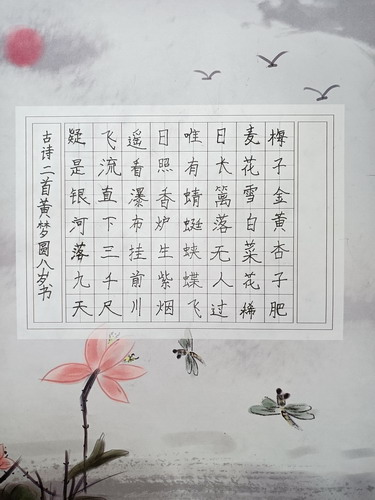 梅子金黄杏子肥
麦花雪白菜花稀
日长篱落无人过
唯有蜻蜓蛱蝶飞
日照香炉生紫烟
遥看瀑布挂前川
飞流直下三千尺
疑是银河落九天
古诗二首黄梦圆八岁书